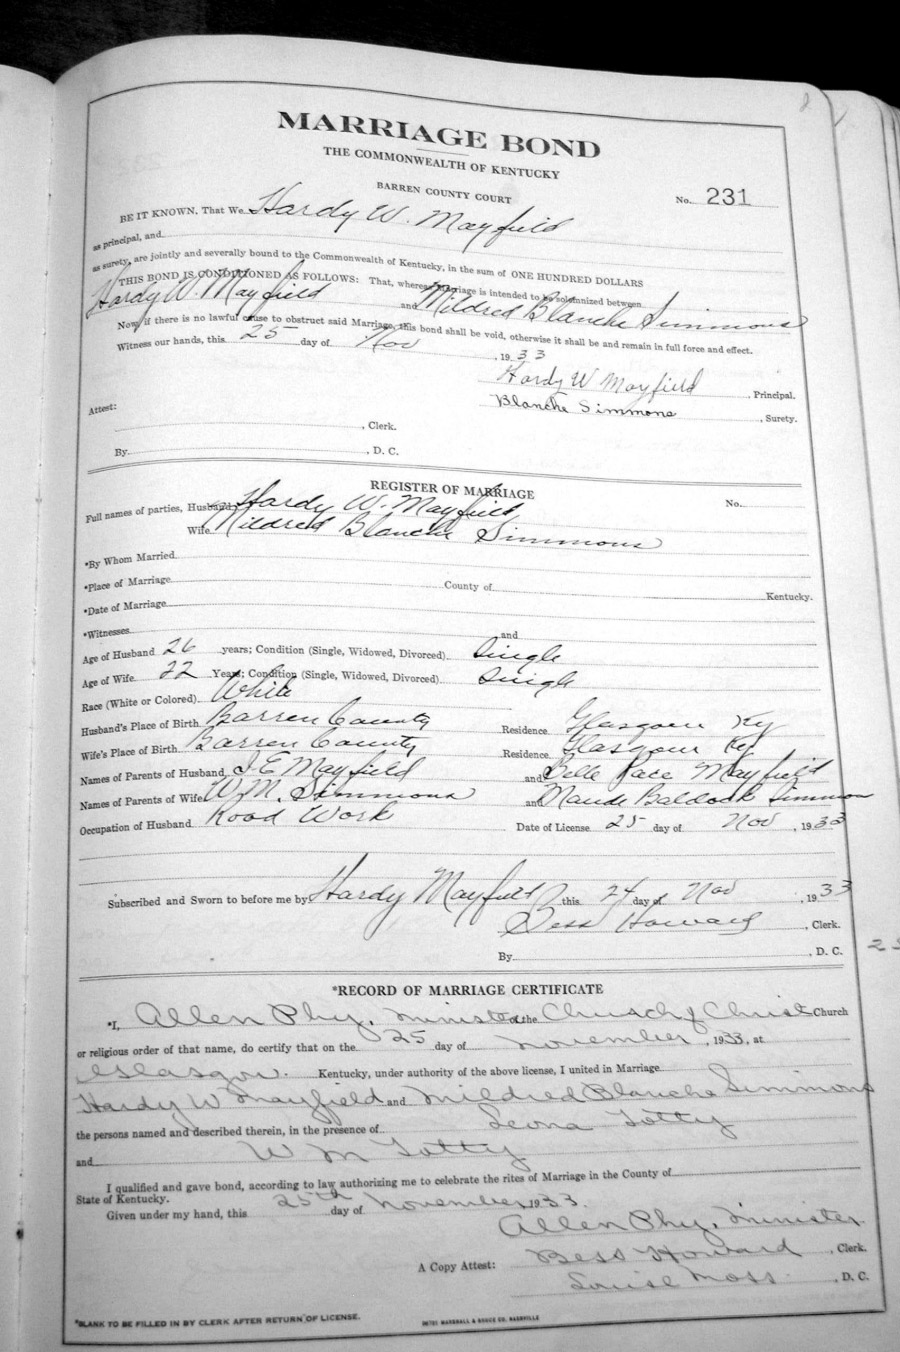 MARRIAGE BOND
THE COMMONWEALTH OF KENTUCKY
BARREN COUNTY COURT
No. 231
BE IT KNOWN, That We Hardy W. Mayfield
as principal, and
as surety, are jointly and severally bound to the Commonwealth of Kentucky, in the sum of ONE HUNDRED DOLLARS
THIS BOND IS CONDITIONED AS FOLLOWS: That, whereas Marriage is intended to be solemnized between
Hardy W. Mayfield and Mildred Blanche Simmons
Now, if there is no lawful cause to obstruct said Marriage, this bond shall be void, otherwise it shall be and remain in full force and effect.
Witness our hands, this 25 day of Nov , 1933
Hardy W Mayfield , Principal.
Blanche Simmons , Surety.
Attest:
, Clerk.
By , D. C.
REGISTER OF MARRIAGE
Full names of parties, Husband Hardy W. Mayfield No.
Wife Mildred Blanche Simmons
*By Whom Married
*Place of Marriage County of Kentucky.
*Date of Marriage
*Witnesses and
Age of Husband 26 years; Condition (Single, Widowed, Divorced) Single
Age of Wife 22 Years; Condition (Single, Widowed, Divorced) Single
Race (White or Colored) White
Husband's Place of Birth Barren County Residence Glasgow Ky
Wife's Place of Birth Barren County Residence Glasgow Ky.
Names of Parents of Husband J. E Mayfield and Belle Pace Mayfield
Names of Parents of Wife W. M. Simmons and Maude Baldock Simmon
Occupation of Husband Road Work Date of License 25 day of Nov , 1933
Subscribed and Sworn to before me by Hardy Mayfield this 24 day of Nov , 1933
Bess Howard , Clerk.
By , D. C.
*RECORD OF MARRIAGE CERTIFICATE
*I, Allen Phy, Minister of the Church of Christ Church
or religious order of that name, do certify that on the 25 day of November , 1933, at
Glasgow. Kentucky, under authority of the above license, I united in Marriage
Hardy W Mayfield and Mildred Blanche Simmons
the persons named and described therein, in the presence of Leona Totty
and W M Totty
I qualified and gave bond, according to law authorizing me to celebrate the rites of Marriage in the County of
State of Kentucky.
Given under my hand, this 25th day of November 1933.
Allen Phy, Minister.
A Copy Attest: Bess Howard , Clerk.
Louise Moss. , D. C.
*BLANK TO BE FILLED IN BY CLERK AFTER RETURN OF LICENSE.
MARSHALL & BRUCE CO. NASHVILLE